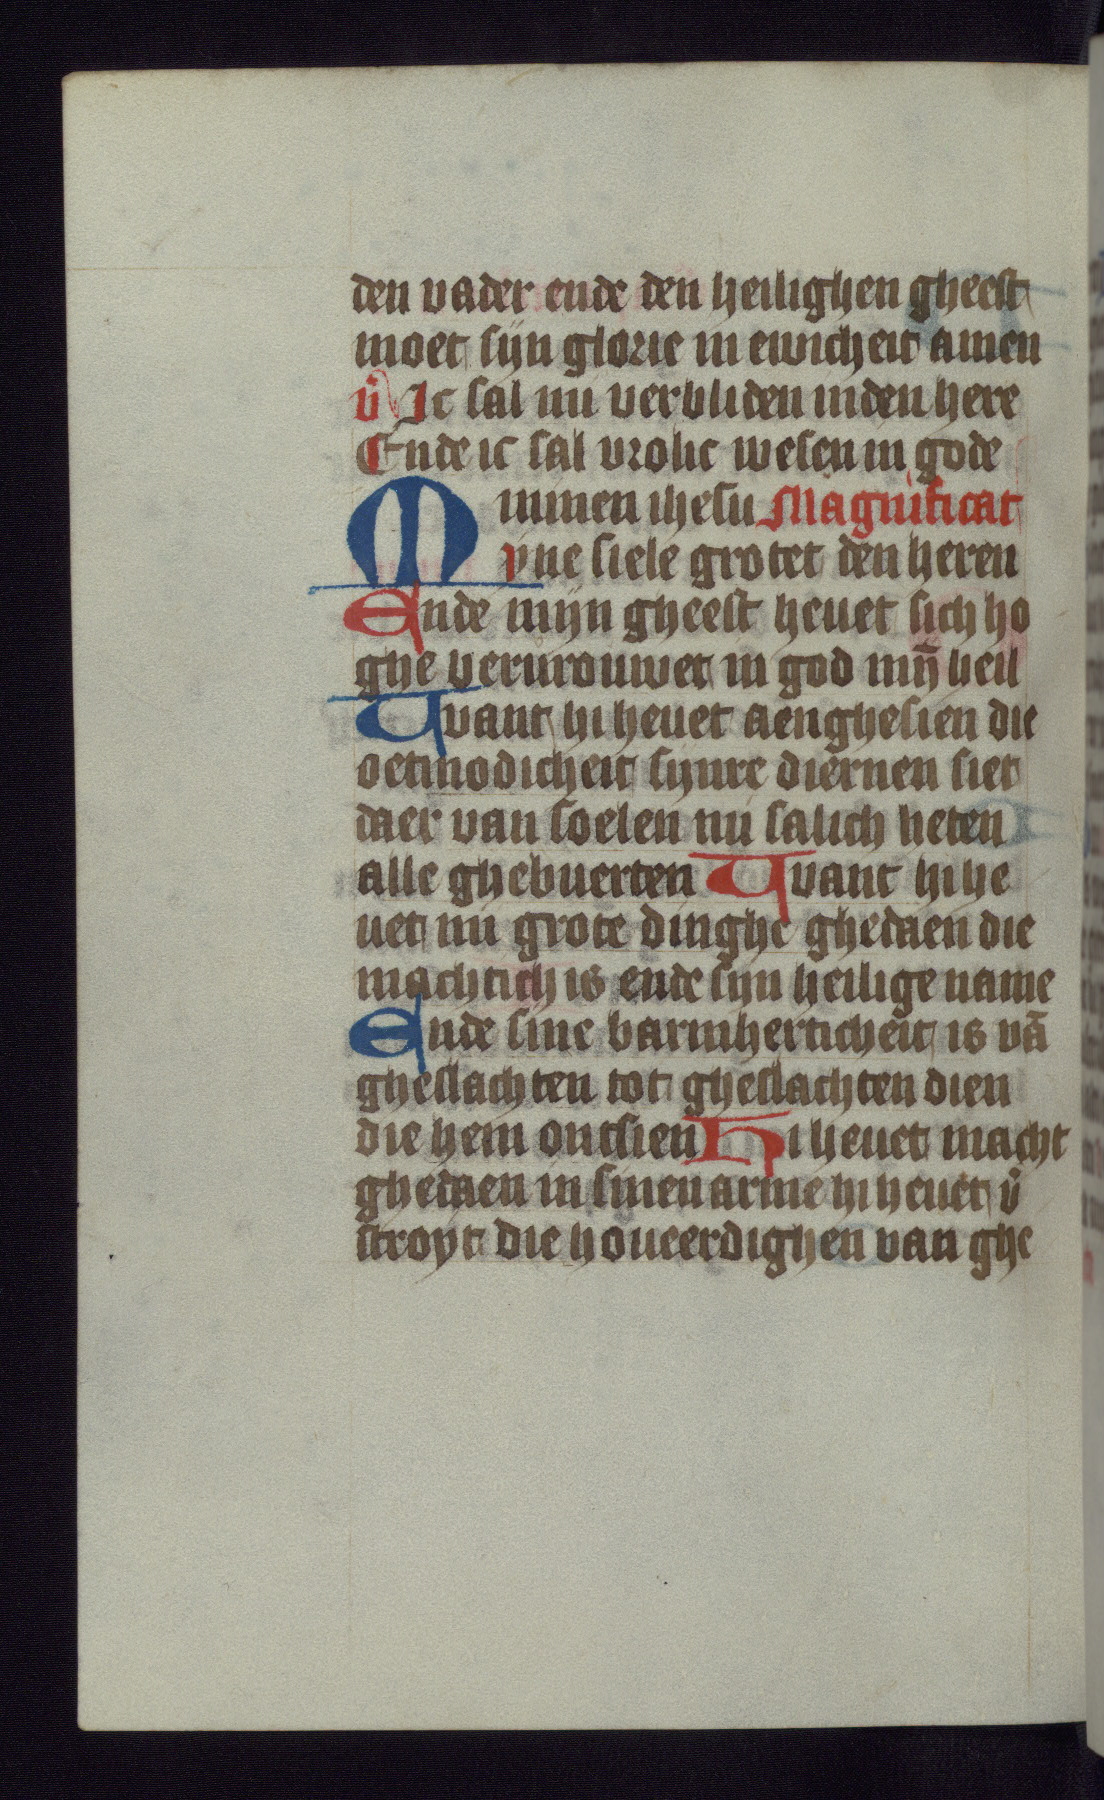 den vader ende den heilighen gheest
moet sijn glorie in ewicheit amen
v̉ Ic sal mi verbliden inden here
Ende ic sal vrolic wesen in gode
minen ihesu Magnificat
Myne siele grotet den heren
Ende mijn gheest heuet sich ho
ghe vervrouwet in god mȳ heil
Want hi heuet aenghesien die
oetmodicheit sijnre diernen siet
daer van soelen mi salich heten
alle ghebuerten Want hi he
uet mi grote dinghe ghedaen die
machtich is ende sijn heilige name
Ende sine barmherticheit is vā
gheslachten tot gheslachten dien
die hem ontsien Hi heuet macht
ghedaen in sinen arme hi heuet v̉
stroyt die houeerdighen van ghe